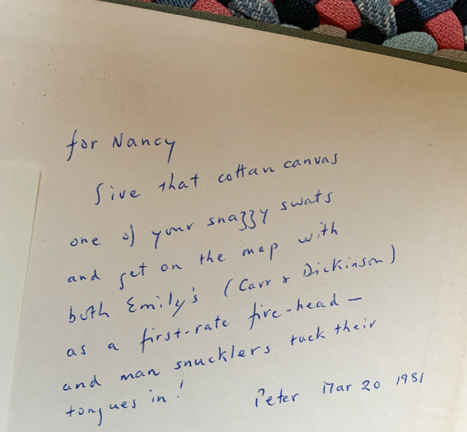 for Nancy
Give that cottan canvas
one of your snazzy swats
and get on the map with
both Emily's (Carr & Dickinson)
as a first-rate fire-head —
and man snucklers tuck their
tongues in!
Peter Mar 20 1981